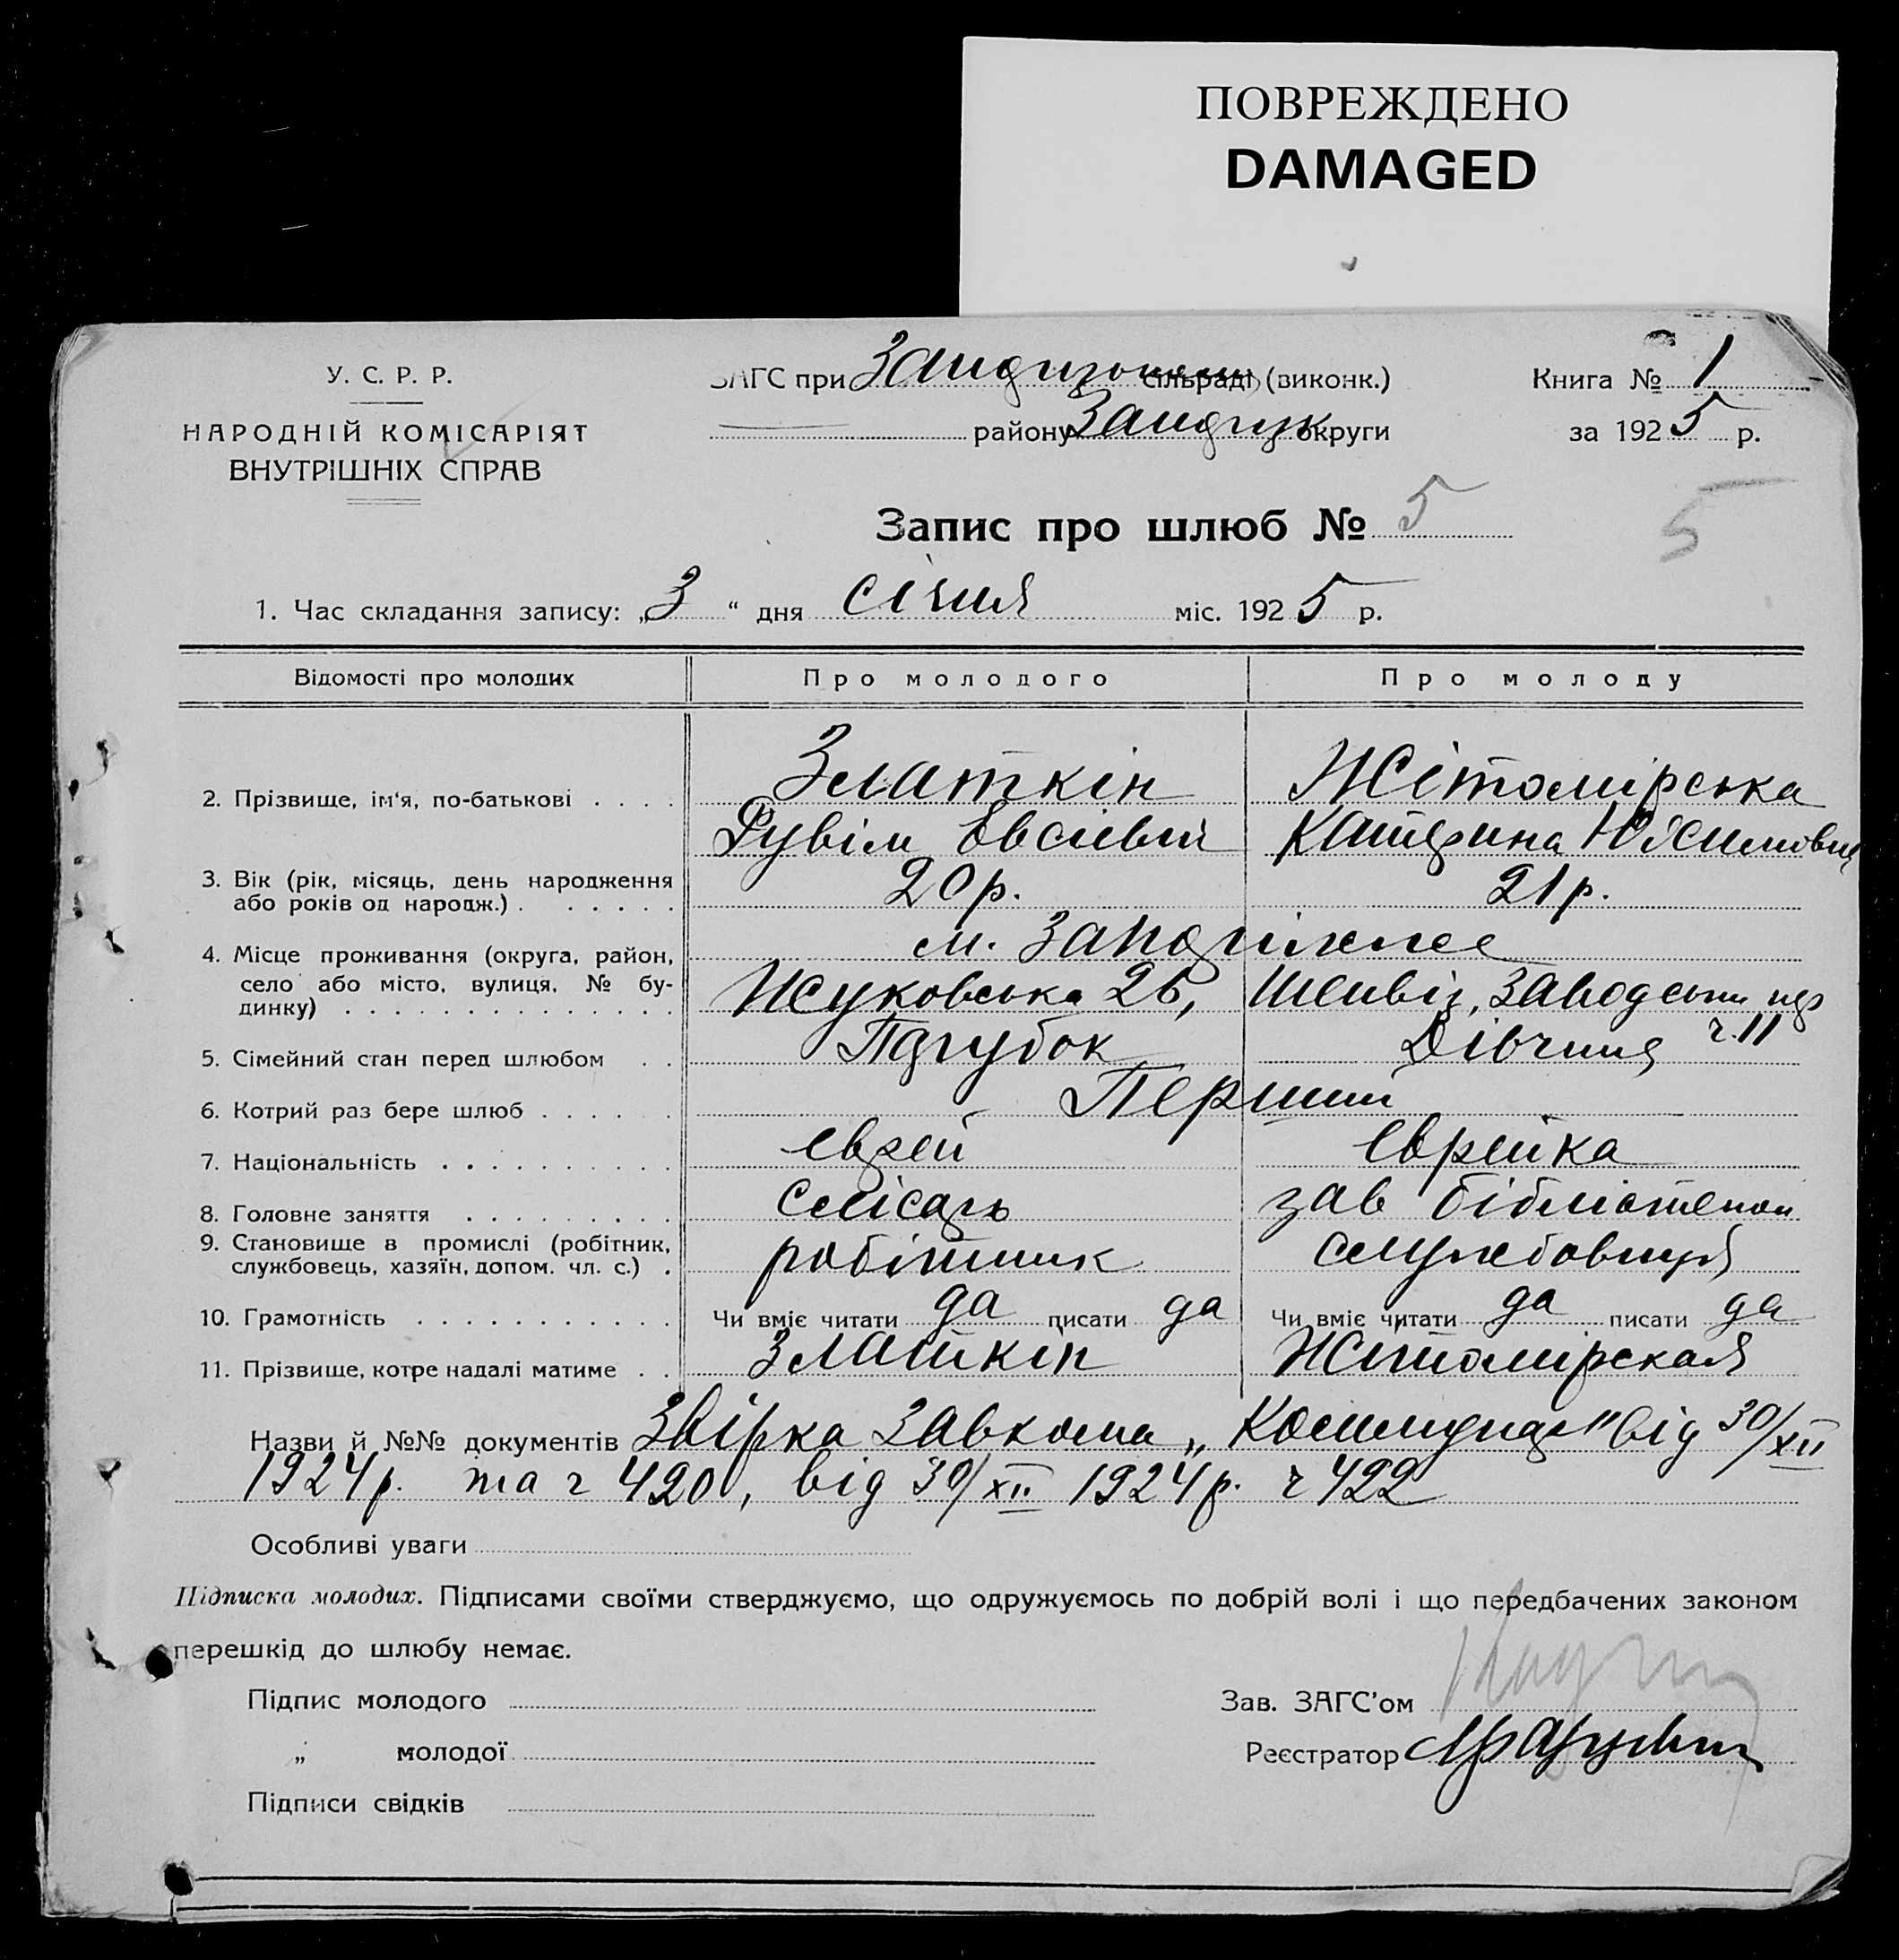 ПОВРЕЖДЕНО
DAMAGED
У. С. Р. Р.
НАРОДНІЙ КОМІСАРІЯТ
ВНУТРІШНІХ СПРАВ
ЗАГС при сільраді (виконк.)
району округи
Книга № 1
за 1925 р.
Запис про шлюб № 5
5
1. Час складання запису: „3“ дня січня міс. 1925 р.
Відомості про молодих
Про молодого
Про молоду
2. Прізвище, ім'я, по-батькові . . . .
Златкін
Рувім Евсіевич
Жітомірська
Катерина
3. Вік (рік, місяць, день народження
або років од народж.) . . . . . .
20р.
21р.
4. Місце проживання (округа, район,
село або місто, вулиця, № бу-
динку) . . . . . . . . . . . . . .
м. Запоріжже
Жуковська 26,
Заводськи
ч. 11
5. Сімейний стан перед шлюбом . .
Парубок
Дівчина
6. Котрий раз бере шлюб . . . . . .
Перший
7. Національність . . . . . . . . . .
еврей
еврейка
8. Головне заняття . . . . . . . . .
слісарь
зав бібліотекой
9. Становище в промислі (робітник,
службовець, хазяїн, допом. чл. с.) .
робітник
службовиця
10. Грамотність . . . . . . . . . . .
Чи вміє читати да писати да
Чи вміє читати да писати да
11. Прізвище, котре надалі матиме . .
Златкін
Жітомірская
Назви й №№ документів Звірка Завкома „Коммунар" від 30/XII
1924р. та ч 420, від 30/XII 1924р. ч 422
Особливі уваги
Підписка молодих. Підписами своїми стверджуємо, що одружуємось по добрій волі і що передбачених законом
перешкід до шлюбу немає.
Підпис молодого
„ молодої
Підписи свідків
Зав. ЗАГС'ом
Реєстратор